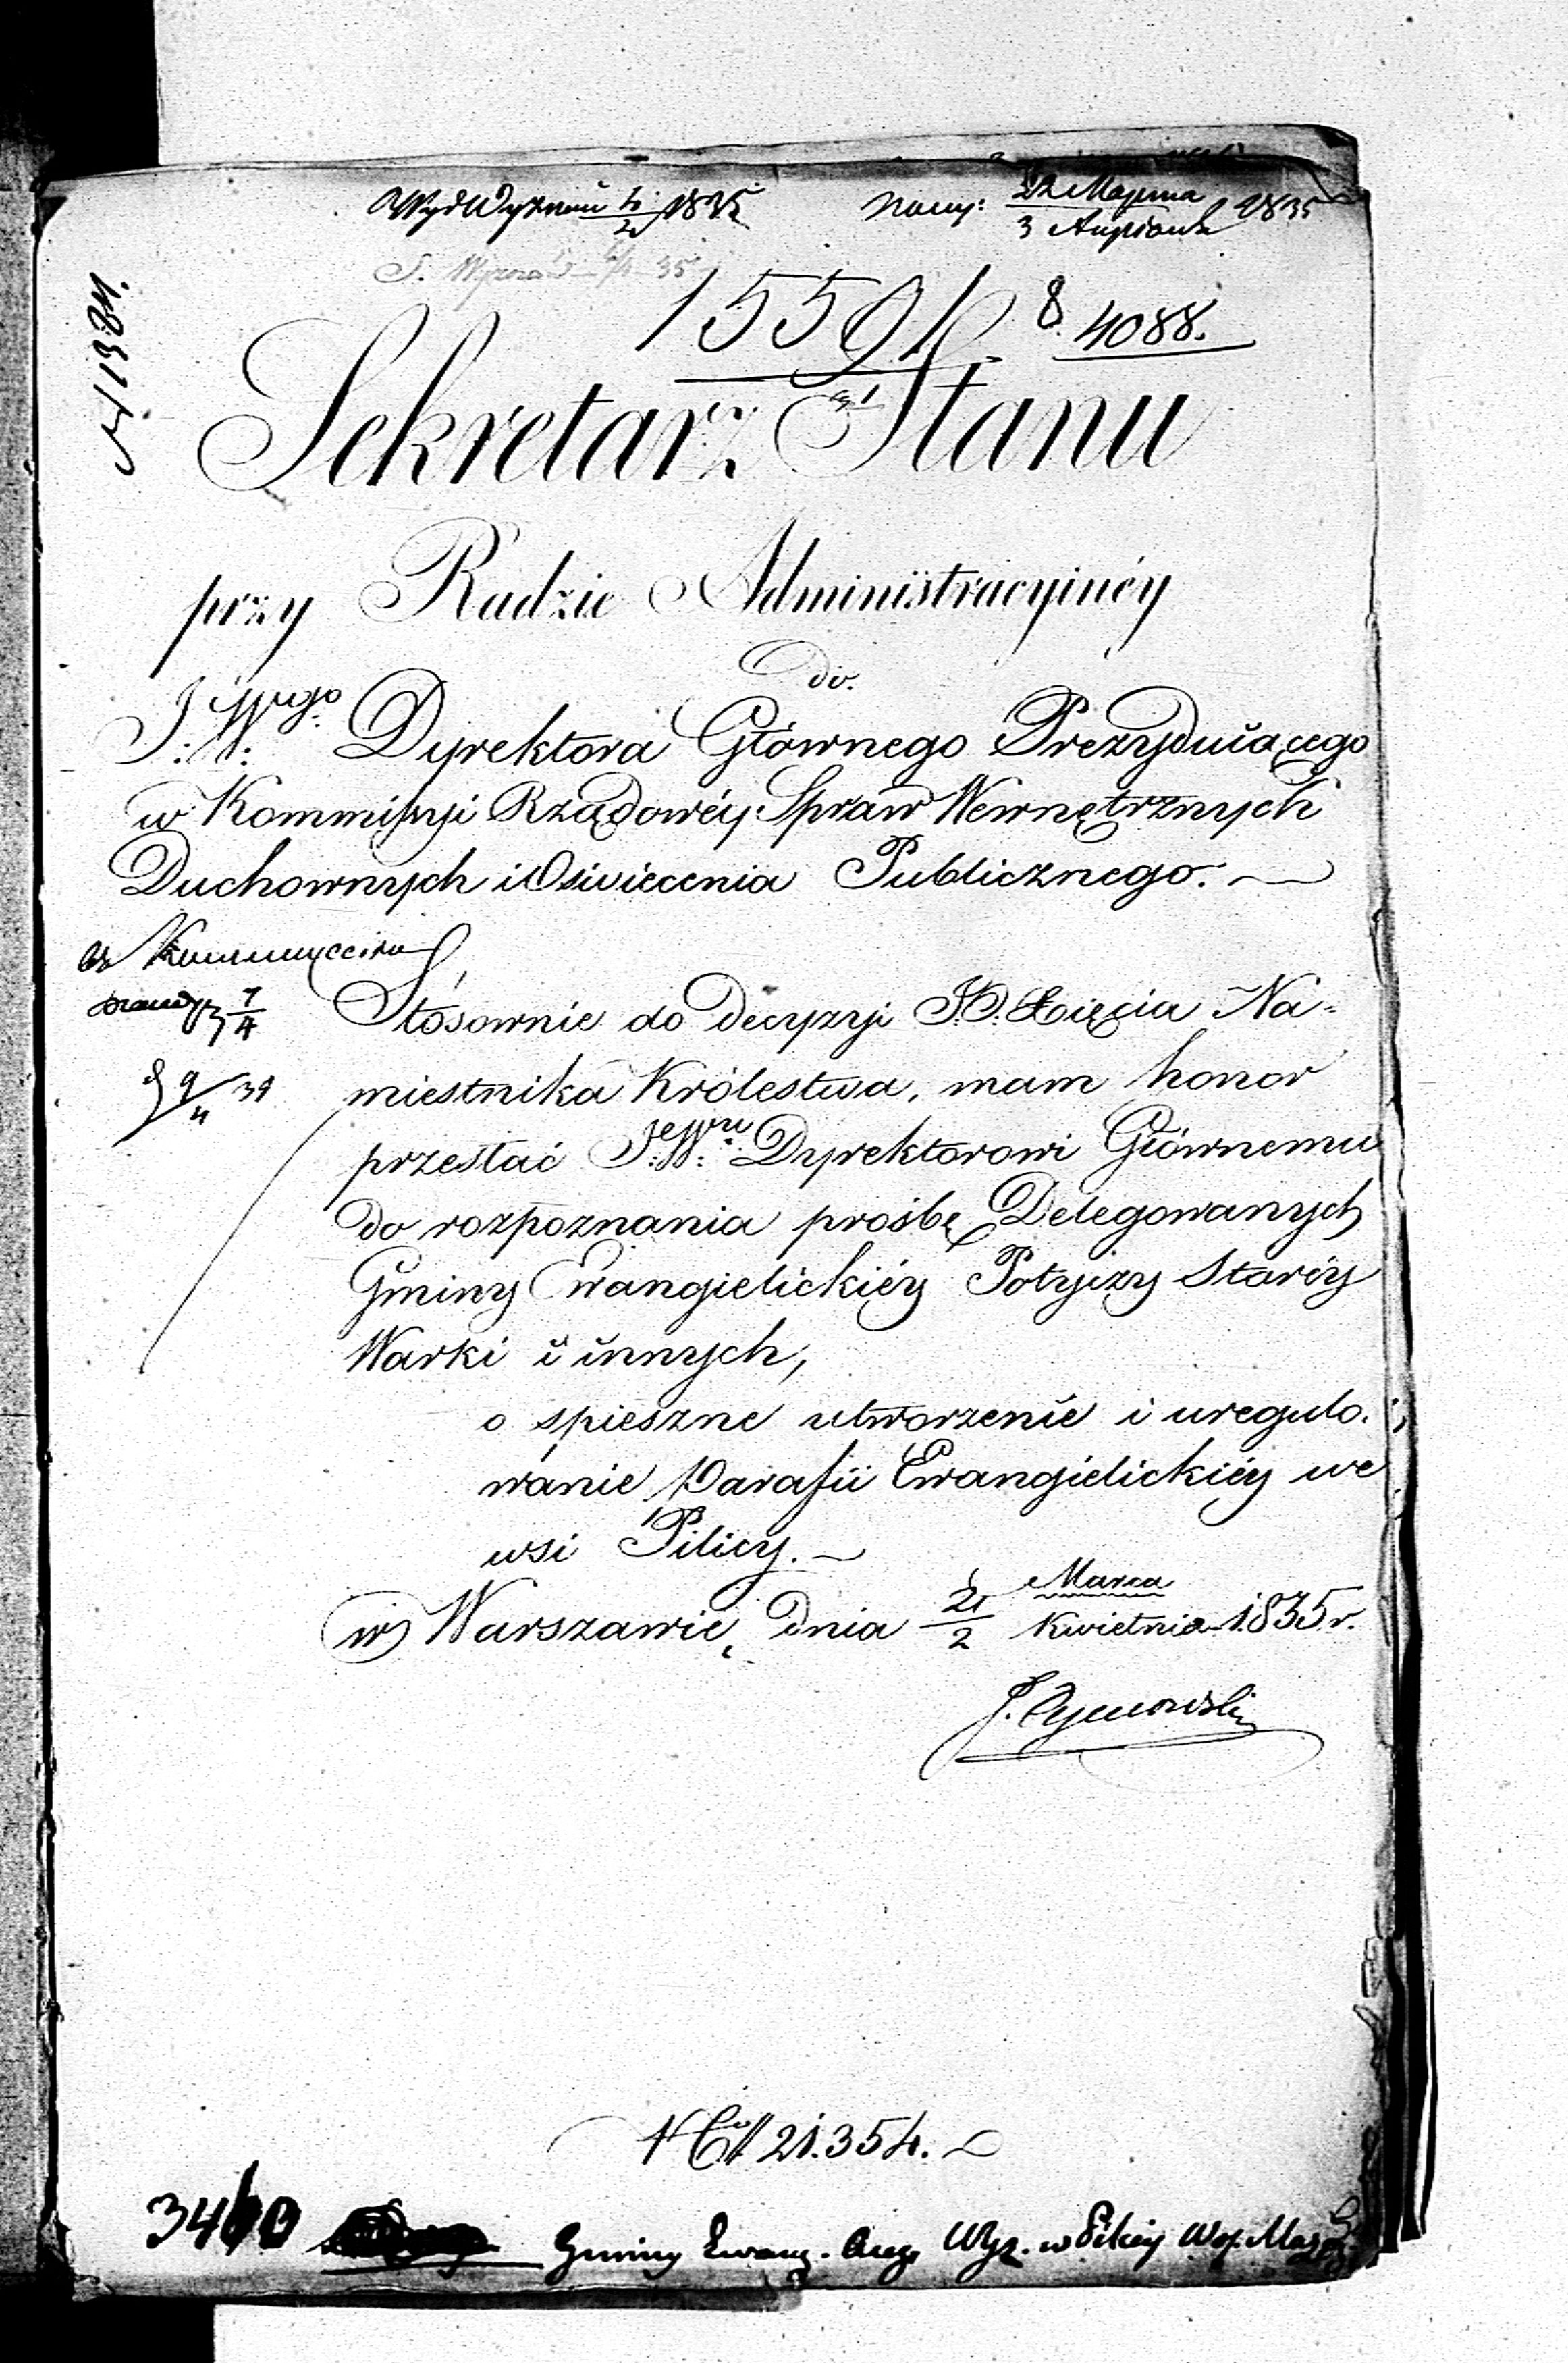 Wyd Wyznań 4/2 1835
22 Марта
3 Апрѣля 1835
15591 8. 4088.
N 11384.
Sekretarz Stanu
przy Radzie Administracyinéy
do.
J.W.go Dyrektora Głównego Prezyduiącego
w Kommissyi Rządowéy Spraw Wewnętrznych
Duchownych i Oświecenia Publicznego.
Stósownie do decyzyi J.O. Xięcia Na=
miestnika Królestwa, mam honor
przesłać J.W.mu Dyrektorowi Głównemu
do rozpoznania prośbę Delegowanych
Gminy Ewangielickiéy Potyczy Staréy
Warki i innych,
o spieszne utworzenie i uregulo.
wanie Parafii Ewangielickiéy we
wsi Pilicy.
w Warszawie, dnia 21/2 Marca/Kwietnia 1835 r.
21.354.
Gminy Ewang. Aug. Wyz. w Pilicy Woj. Maz